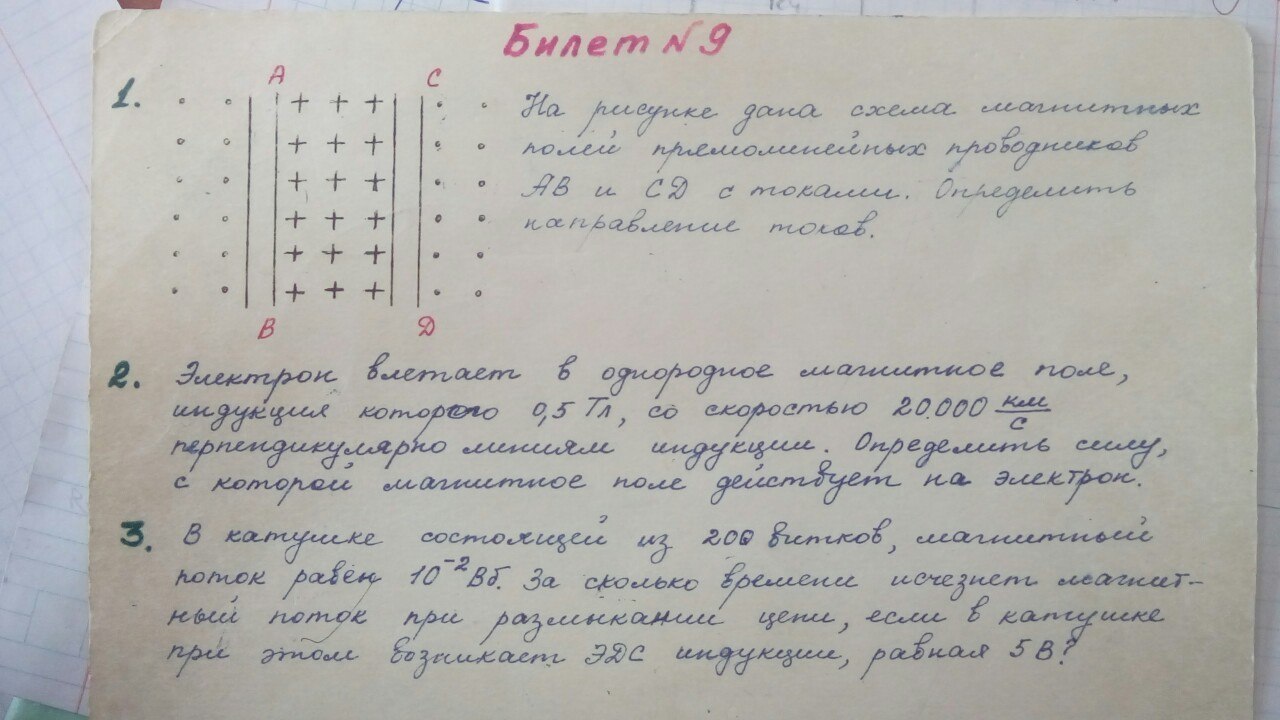 Билет №9
1.
А С
В Д
На рисунке дана схема магнитных
полей прямолинейных проводников
АВ и СД с токами. Определить
направление токов.
2. Электрон влетает в однородное магнитное поле,
индукция которого 0,5 Тл, со скоростью 20.000 км/с
перпендикулярно линиям индукции. Определить силу,
с которой магнитное поле действует на электрон.
3. В катушке состоящей из 200 витков, магнитный
поток равен 10⁻² Вб. За сколько времени исчезнет магнит-
ный поток при размыкании цепи, если в катушке
при этом возникает ЭДС индукции, равная 5 В?